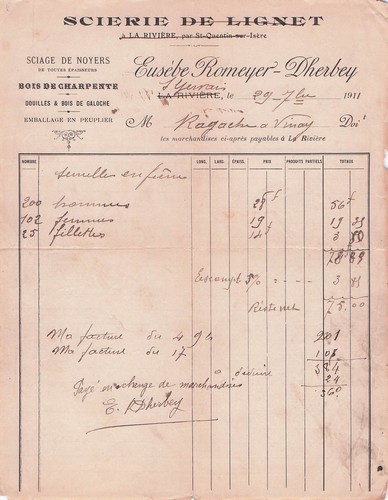 SCIERIE DE LIGNET
à LA RIVIÈRE, par St-Quentin-sur-Isère
SCIAGE DE NOYERS
DE TOUTES ÉPAISSEURS
BOIS DE CHARPENTE
DOUILLES & BOIS DE GALOCHE
EMBALLAGE EN PEUPLIER
Eusèbe Romeyer-Dherbey
St Gervais
LA RIVIÈRE, le 29-7bre 1911
M Ragache à Vinay Doit
les marchandises ci-après payables à La Rivière
NOMBRE LONG. LARG. ÉPAISS. PRIX PRODUITS PARTIELS TOTAUX
semelles en
200 hommes 28f 56f
102 femmes 19f 19
25 fillettes 14f 3
Escompte 5% 3
Reste net 75.00
Ma facture du 4
Ma facture du 17
à déduire
Payé en échange de marchandises
E. R Dherbey